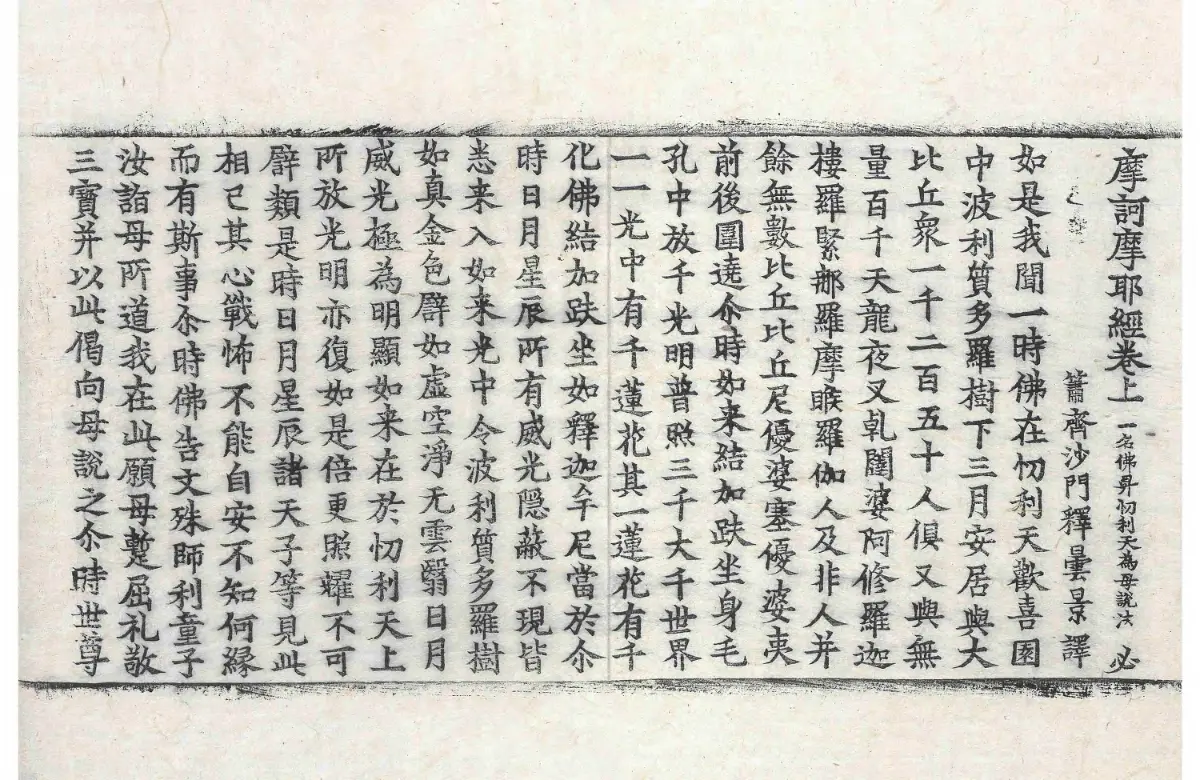 摩訶摩耶經卷上 一名佛昇忉利天為母說法 必
蕭齊沙門釋曇景譯
如是我聞一時佛在忉利天歡喜園
中波利質多羅樹下三月安居與大
比丘衆一千二百五十人俱又與無
量百千天龍夜叉乹闥婆阿修羅迦
樓羅緊那羅摩睺羅伽人及非人并
餘無數比丘比丘尼優婆塞優婆夷
前後圍遶尒時如来結加趺坐身毛
孔中放千光明普照三千大千世界
一一光中有千蓮花其一蓮花有千
化佛結加趺坐如釋迦牟尼當於尒
時日月星辰所有威光隱蔽不現皆
悉来入如来光中令波利質多羅樹
如真金色譬如虛空淨无雲翳日月
威光極為明顯如来在於忉利天上
所放光明亦復如是倍更照耀不可
譬類是時日月星辰諸天子等見此
相已其心戰怖不能自安不知何緣
而有斯事尒時佛告文殊師利童子
汝詣母所道我在此願母蹔屈礼敬
三寶并以此偈向母說之尒時世尊